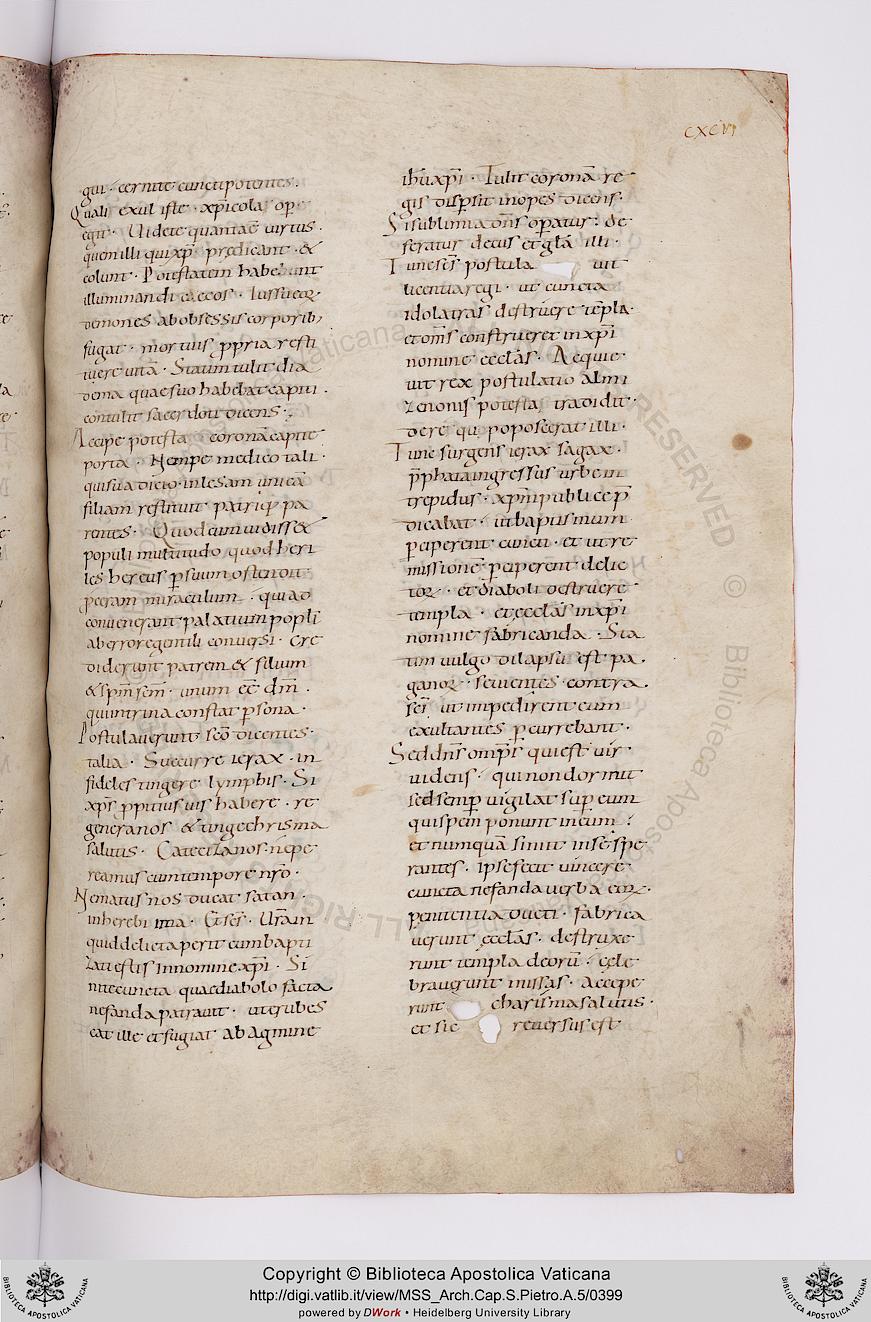 CXCVI
qui · cernite cunctipotentes ·
Quali exul iste · xp̄icola ope
egit · Videte quantae virtus ·
quem illi qui xp̄m predicant · &
colunt · Potestatem habebunt
illuminandi caecos · Iussuq;
demones ab obsessis corporib;
fugat · mortuis ppria resti
tuere vitā · Statim tulit dia
dema quae suo habebat capiti ·
contulit sacerdoti dicens ·
Accipe potesta coronā capite
porta · Nempe medico tali ·
qui sua dicto inlesam unicā
filiam restituit patriq; pa
rentes · Quod cum vidiss&
populi multitudo quod heri
les hereus psuum ostendit
peeram miraculum · qui ad
convenerant palatium popli
ab errore gentili conversi · cre
diderunt patrem & filium
& sp̄m sc̄m · unum ee dm̄ ·
qui in trina constat psona ·
Postulaverunt sc̄o dicentes ·
talia · Succurre ierax · in
fideles tingere lymphis · Si
xp̄s ppitius vis habere · re
genera nos & unge chrisma
salutis · Catecizanos · ne pe
reamus cum tempore nr̄o ·
Ne matus nos ducat satan ·
in herebi ima ·
quid delicta perit cum bapti
zati estis in nomine xp̄i · Si
nite cuncta quae diabolo facta
nefanda patravit · ut erubes
cat ille et fugiat ab agmine
ih̄u xp̄i · Tulit coronā re
gis dispsit inopes dicens ·
Si sublimia om̄s opatur · de
seratur decus et gl̄a illi ·
Tunc ses̄ postula vit
licentia regi · ut cuncta
idolatras destruere tēpla
et om̄s construeret in xp̄i
nomine eccl̄as · Acquie
vit rex postulatio almi
zenonis potesta tradidit
dere qui poposcerat illi ·
Tunc surgens ierax sagax ·
pphata ingressus urbe in
trepidus · xp̄m publice p̄
dicabat · ut baptismum
peiperent cuncti · et ut re
missionē peiperent delic
tor · et diaboli destruere
templa · et eccl̄as in xp̄i
nomine fabricanda · Sta
tim vulgo dilapsu est pa
ganor · sevientes contra
sc̄i ut impedirent eum
exultantes pcurrebant ·
Sed dn̄s omps̄ qui est vir
videns · qui non dormit
sed semp vigilat sup eum
qui spem ponunt in eum ·
et numquā sinit in se spe
rantes · Ipse fecit vincere
cuncta nefanda verba eiz ·
penitentia ducti · fabrica
verunt eccl̄as · destruxe
runt templa deorū · cele
braverunt missas · Accepe
runt charisma salutis ·
et sic reversus est
Copyright © Biblioteca Apostolica Vaticana
http://digi.vatlib.it/view/MSS_Arch.Cap.S.Pietro.A.5/0399
powered by DWork • Heidelberg University Library